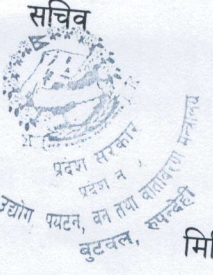 सचिव
प्रदेश सरकार
प्रदेश नं.
उद्योग पर्यटन, वन तथा वातावरण मन्त्रालय
बुटवल, रुपन्देही
मि